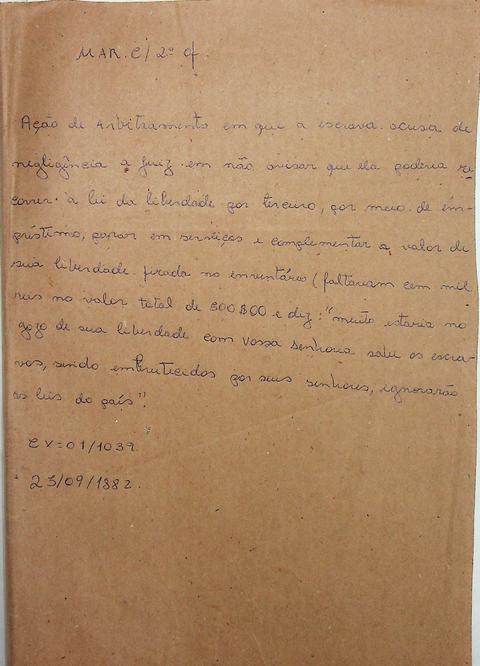 MAR. C/ 2º of.
Ação de arbitramento em que a escrava acusa de
negligência a juiz em não avisar que ela poderia re
correr a lei da liberdade por terceiro, por meio de em-
préstimo, pagar em serviços e complementar a valor de
sua liberdade fixada no inventário (faltavam cem mil
reis no valor total de 300$00 e diz: "muito estaria no
gozo de sua liberdade com Vossa Senhoria sabe os escra-
vos, sendo embrutecidos por seus senhores, ignorarão
as leis do país".
CX=01/1039.
23/09/1882.